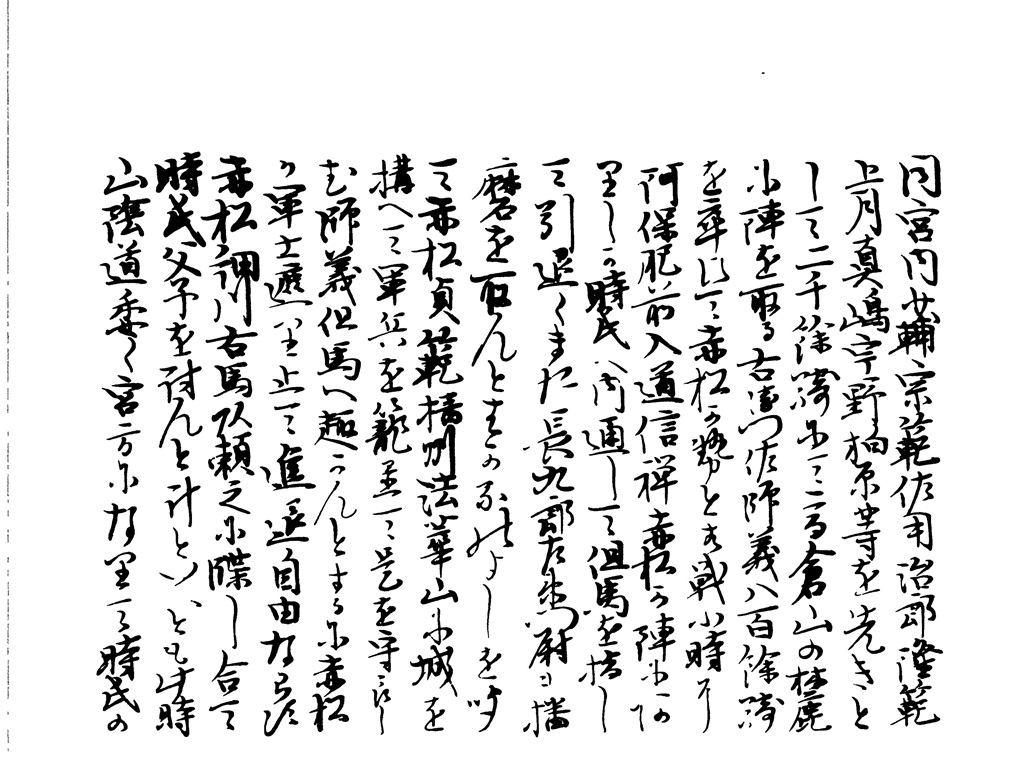 同宮内少輔宗範佐用治郎隆範
上月真嶋宇野柏原等を先きと
して二千餘騎にて高倉山の麓
に陣を取る右衛門佐師義八百餘騎
を率して赤松の勢と戦
阿保肥前入道信禅赤松の陣に
里しか時氏へ内通して但馬を指し
て引退くまた長九郎左衛門尉も播
磨を取んとするよしを
て赤松貞範播州法華山に城を
構へて軍兵を籠置て是を守らし
む師義但馬へ趣かんとするに赤松
か軍士遮り止て進退自由ならす
赤松讃州右馬頭頼之に牒し合て
時氏父子を討んと計といへとも此時
山陰道悉く宮方になりて時氏の